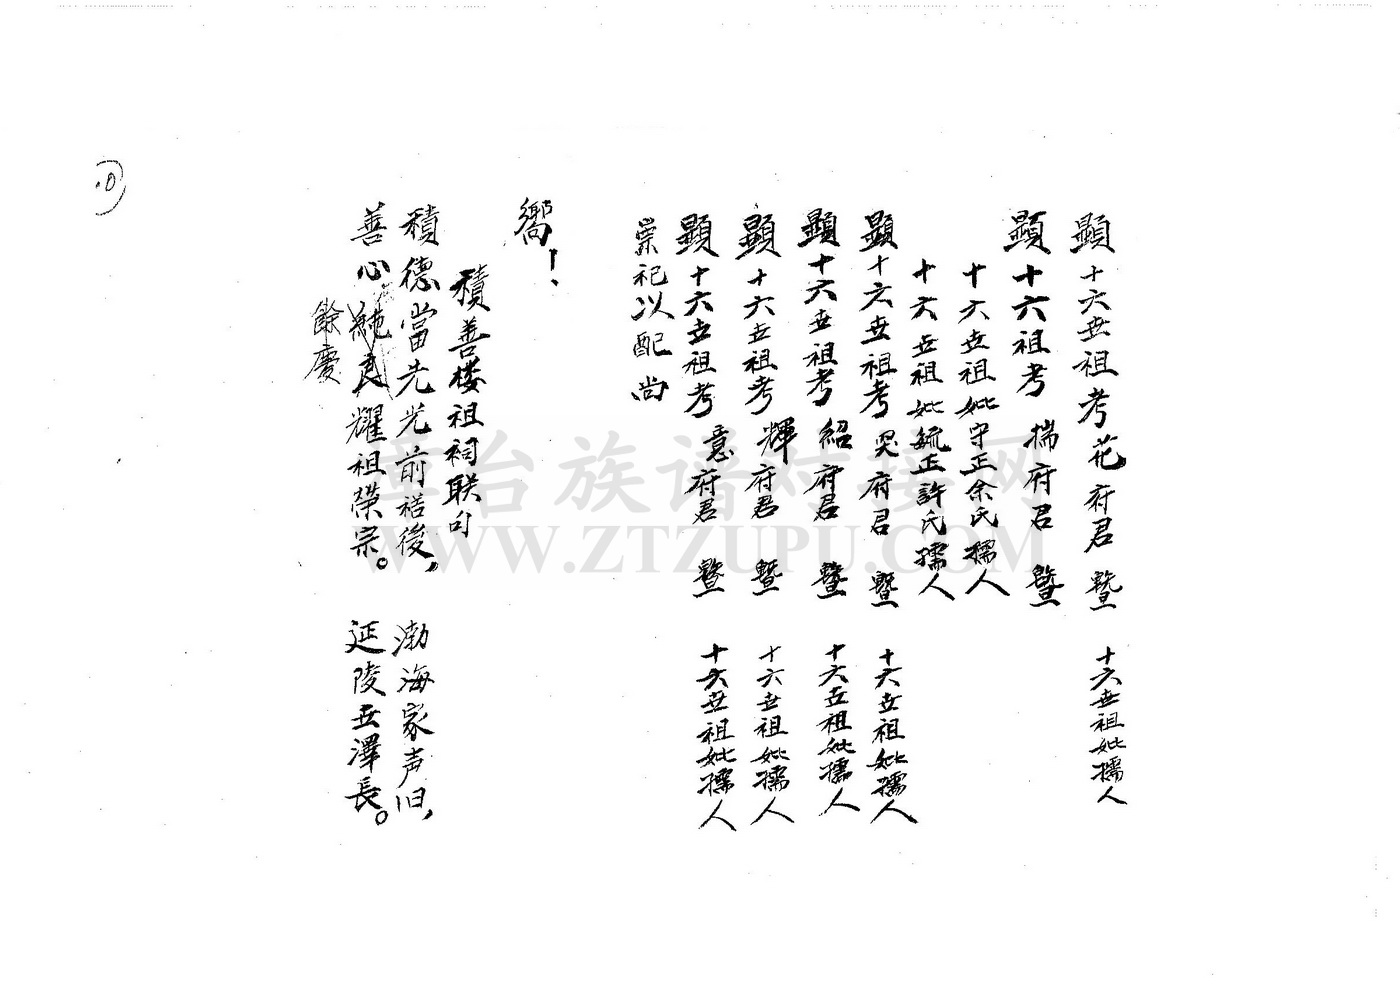 顯十六世祖考花府君暨十六世祖妣孺人
顯十六祖考揣府君暨
十六世祖妣守正余氏孺人
十六世祖妣毓正許氏孺人
顯十六世祖考奕府君暨十六世祖妣孺人
顯十六世祖考紹府君暨十六世祖妣孺人
顯十六世祖考輝府君暨十六世祖妣孺人
顯十六世祖考意府君暨十六世祖妣孺人
崇祀以配尚
嚮！
積善楼祖祠联句
積德當先光前裕後，渤海家声旧，
善心純良耀祖榮宗。延陵世澤長。
餘慶
台族谱对接网
WWW.ZTZUPU.COM